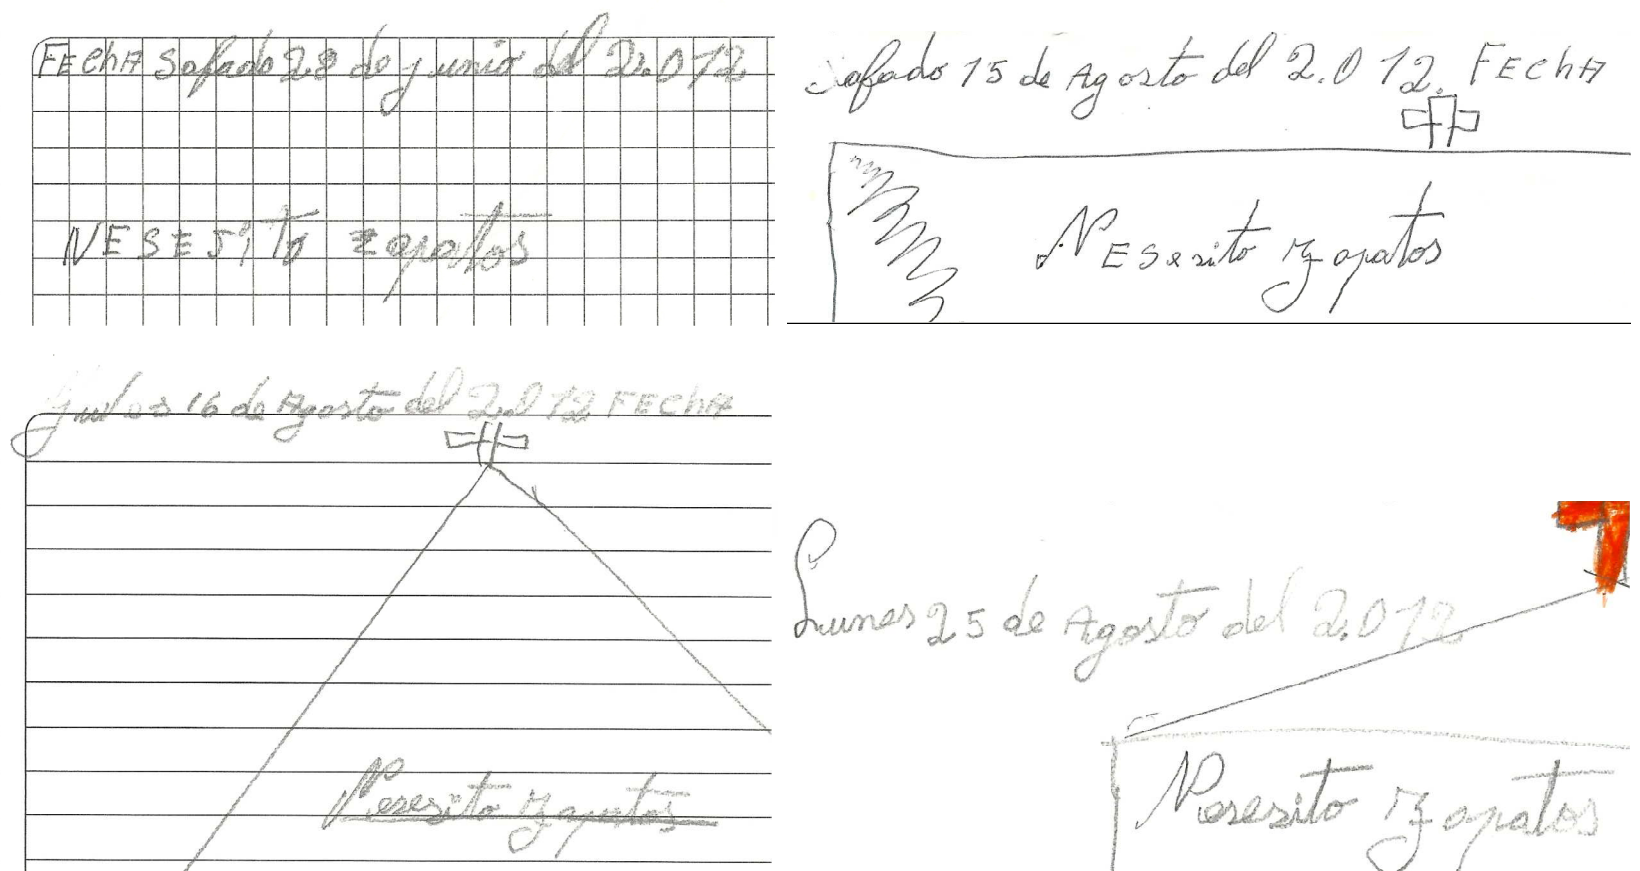 FEchA Safado 23 de junio del 2.012
NESESito zapatos
Safado 15 de Agosto del 2.012. FEchA
NESesito zapatos
16 de Agosto del 2.012 FEchA
Nesesito zapatos
Lunes 25 de Agosto del 2.012
Nesesito zapatos